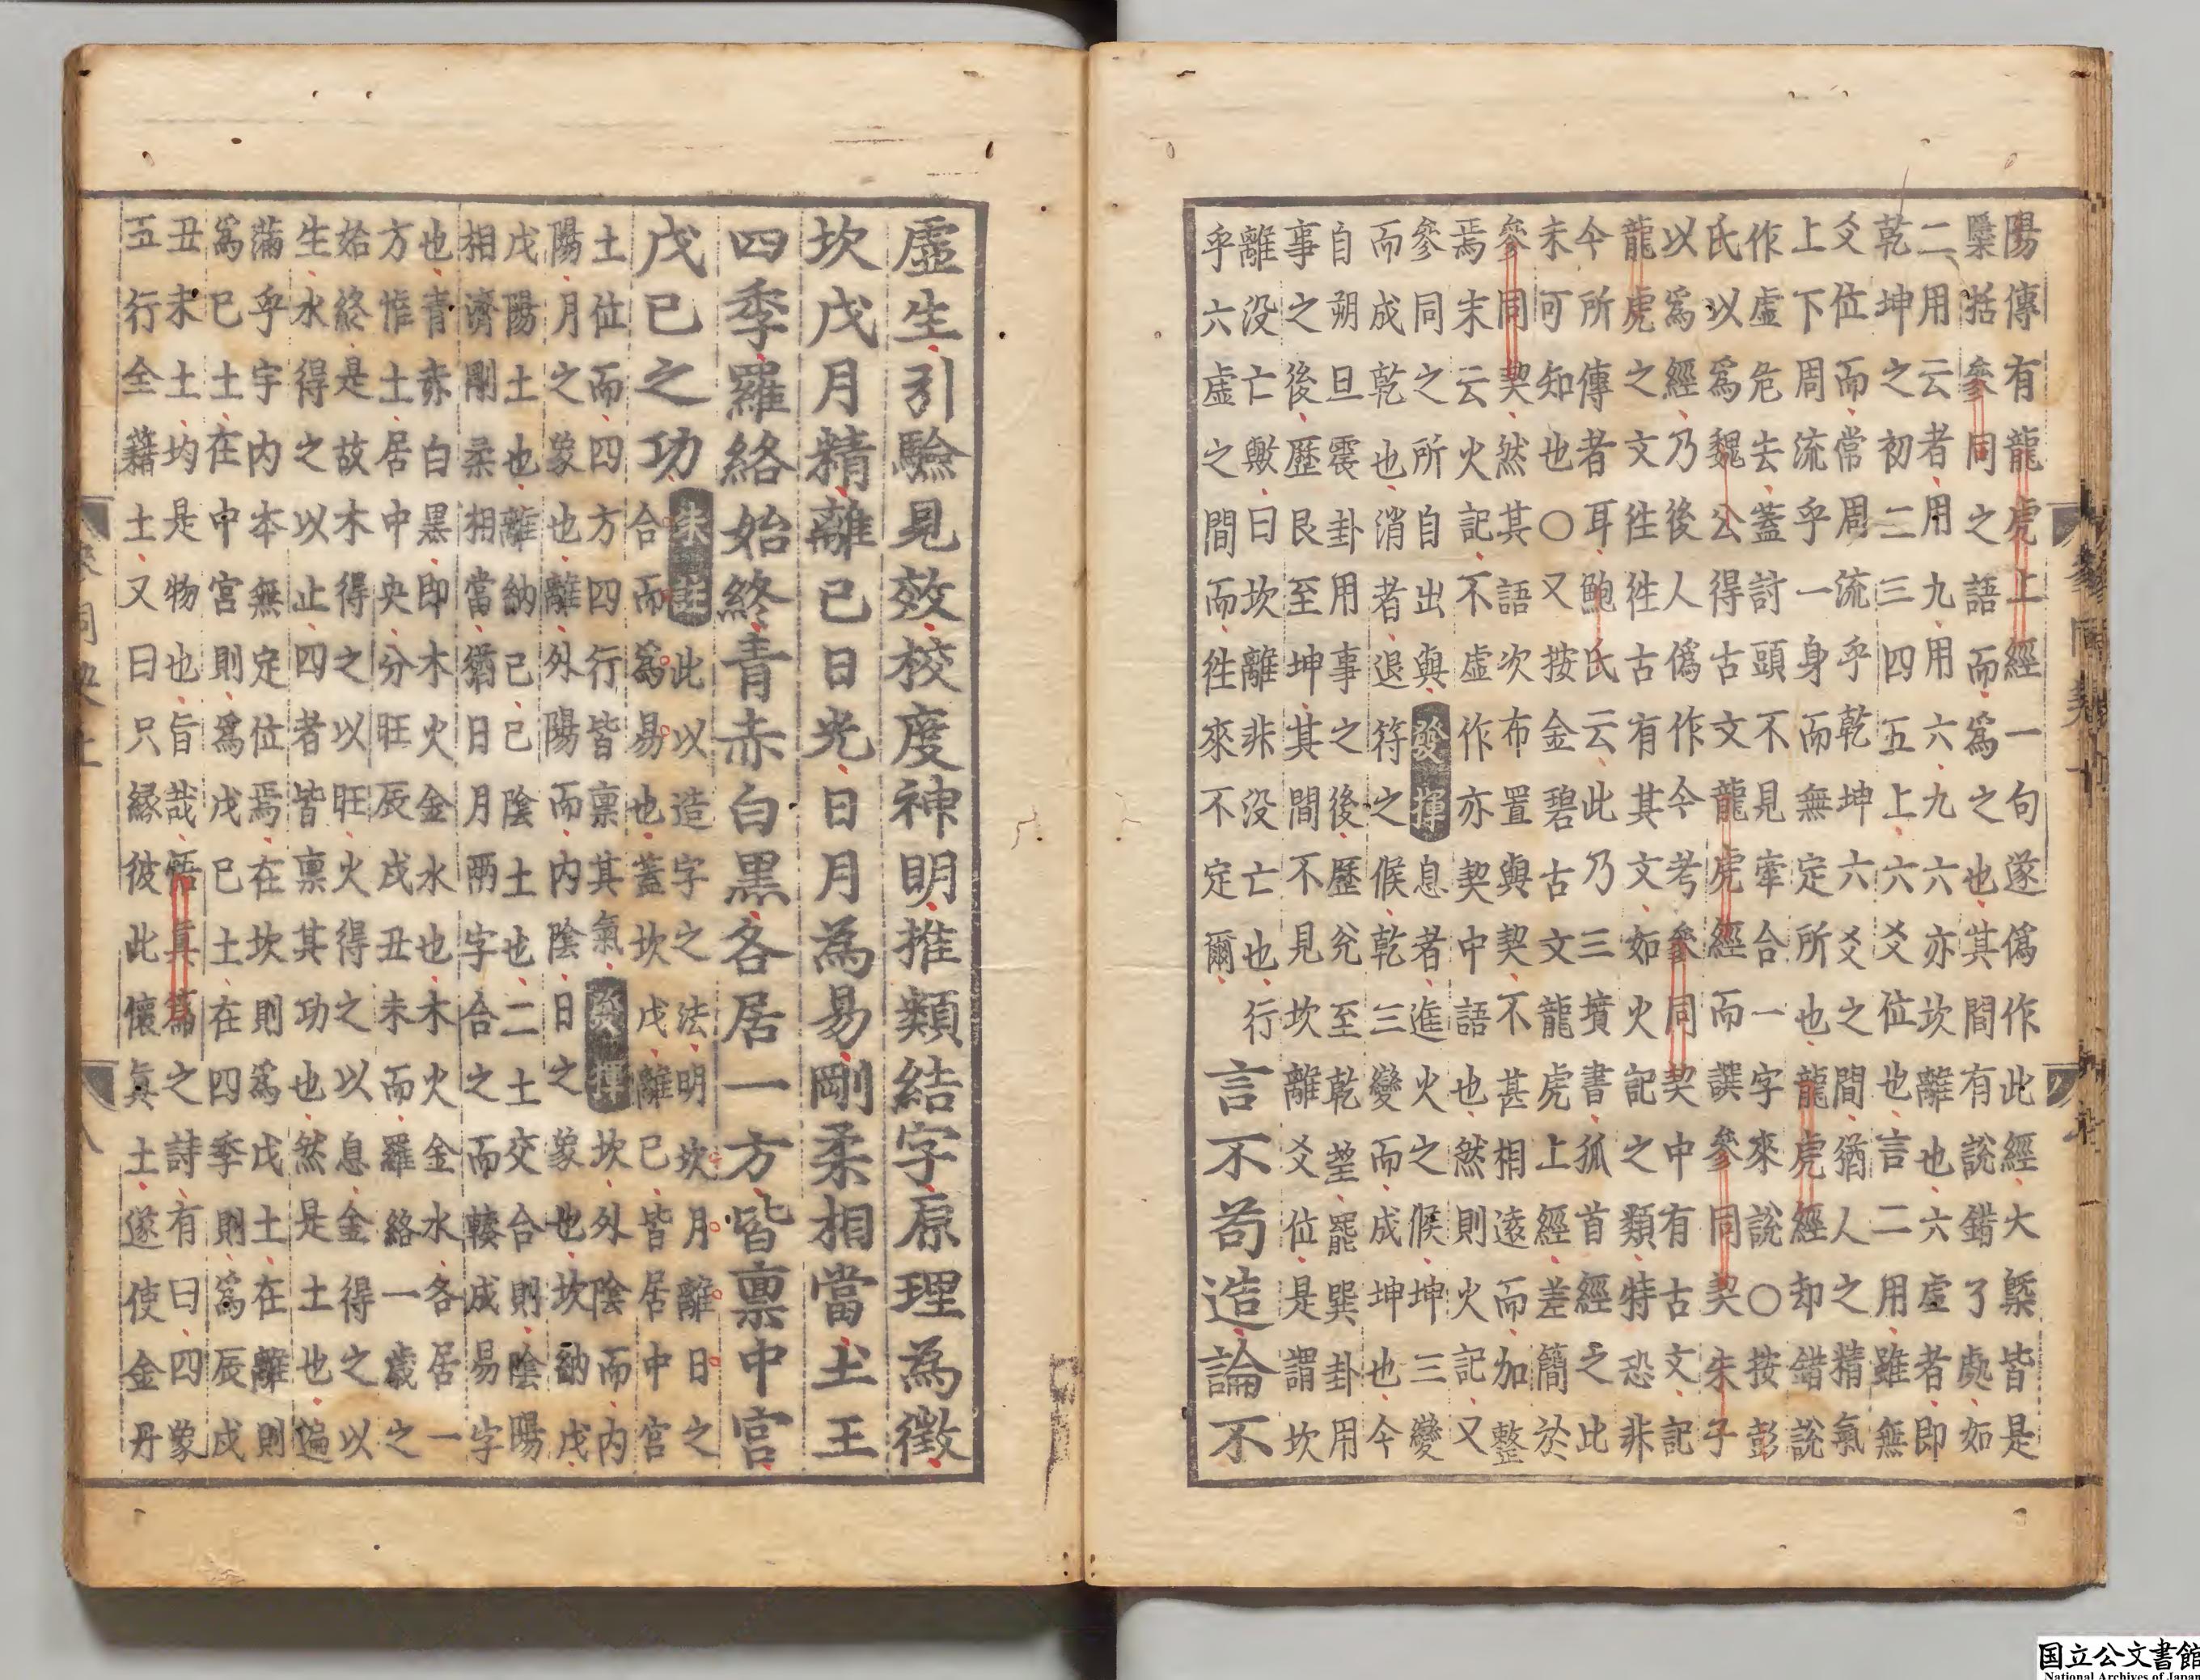 陽傳有龍虎上經一句遂偽作此經大槩皆是
檃括參同之語而為之也其間有說錯了處如
二用云者用九用六九六亦坎離也六虛者即
乾坤之初二三四五上六爻位也言二用雖無
爻位而常周流乎乾坤六爻之間猶人之精氣
上下周流乎一身而無定所也龍虎經却錯說
作虛危去蓋討頭不見牽合一字來說〇按彭
氏以為魏公得古文龍虎經而譔參同契朱子
以為經乃後人偽作今考參同契中有古文記
龍虎之文徃徃古有其文如火記之類特恐非
今所傳者耳鮑氏云此乃三墳書狐首經之此
未可知也〇又按金碧古文龍虎上經差簡於
參同契然其語次布置與契不甚相遠而加整
焉末云火記不虛作亦契中語也然則火記又
參同之所自出與發揮息者進火之候坤三變
而成乾也消者退符之候乾三變而成坤也今
自朔旦震卦用事之後歷兌至乾望罷巽卦用
事之後歷艮至坤其間不見坎離爻位是謂坎
離没亡歟曰坎離非没亡也行
乎六虛之間而徃來不定爾
言不苟造論不
參同契上
虛生引驗見效校度神明推類結字原理為徵
坎戊月精離己日光日月為易剛柔相當土王
四季羅絡始終青赤白黑各居一方皆禀中宮
戊己之功
朱註此以造字之法明坎月離日之
合而為易也蓋坎戊離己皆居中宮
土位而四方四行皆禀其氣發揮坎外陰而內
陽月之象也離外陽而內陰日之象也坎納戊
戊陽土也離納己己陰土也二土交合則陰陽
相濟剛柔相當猶日月兩字合之而轃成易字
也青赤白黑即木火金水也木火金水各居一
方惟土居中央分旺辰戌丑未而羅絡一歲之
始終是故木得之以旺火得之以息金得之以
生水得之以止四者皆禀其功也然是土也遍
滿乎宇內本無定位焉在坎則為戊土在離則
為己土在中宮則為戊己土在四季則為辰戌
丑未土均是物也旨哉悟真篇之詩有曰四象
五行全藉土又曰只緣彼此懷眞土遂使金丹
国立公文書館
National Archives of Japan